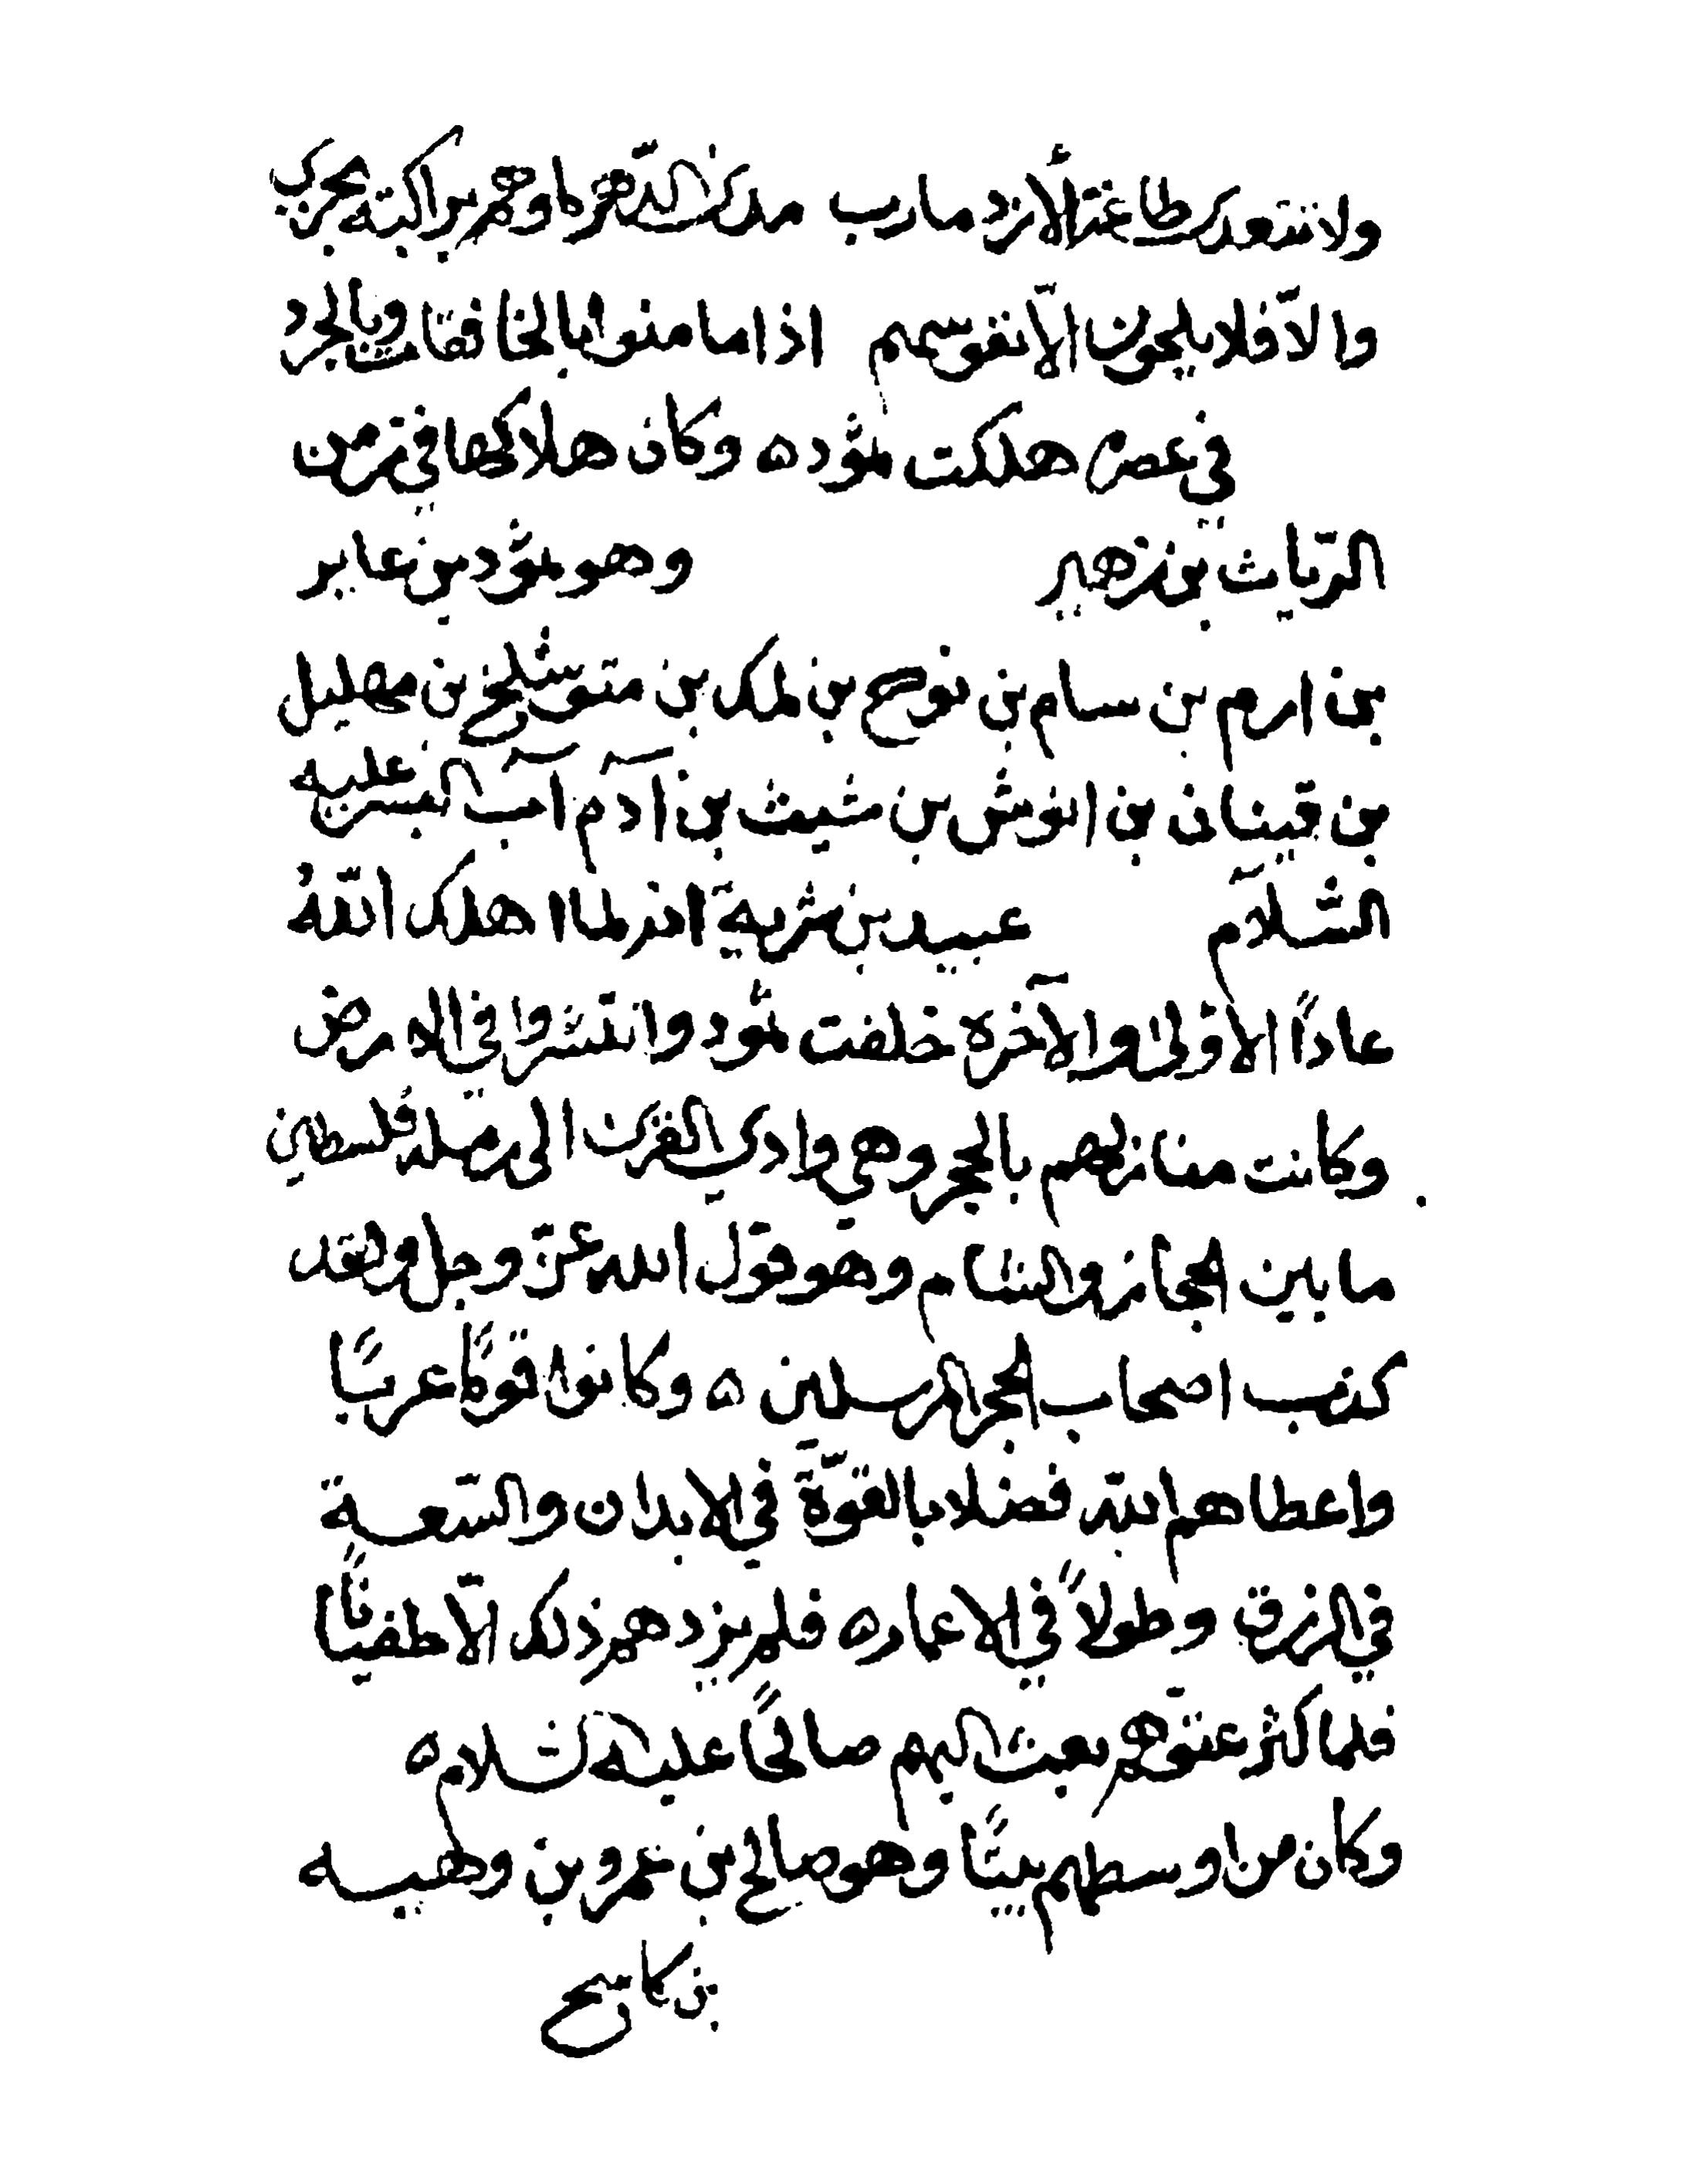 ولا تتعدى طاعة الأزد مارب مدى الدهر كا وهم براكبة يجري
والا فلا يلحون الا نفوسهم اذا ما منوا بالخافقات وبالجرد
في عصر هلكت ثمود ه وكان هلاكها في زمن
الريان بن زهير وهو ثمود بن عابر
بن ارم بن سام بن نوح بن لمك بن متوشلخ بن مهليل
بن قينان بن انوش بن شيث بن آدم آب البشر عليه
السلام عبيد بن شرية انه لما اهلك اللهُ
عادًا الاولى والآخرة خلفت ثمود وانتشروا في الارض
وكانت منازلهم بالحجر وهي وادي القرى الى رملة فلسطين
ما بين الحجاز والشام وهو قول الله عز وجل ولقد
كذب اصحاب الحجر المرسلين ه وكانوا قومًا عربًا
واعطاهم الله فضلا بالقوّة في الابدان والسّعـة
في الرزق وطولاً في الاعمار ه فلم يزدهم ذلك الّا طغيانًا
فلما كثر عتوّهم بعث اليهم صالحًا عليه السلام ه
وكان من اوسطهم بيتًا وهو صالح بن عمرو بن وهبيـه
بن كاشح